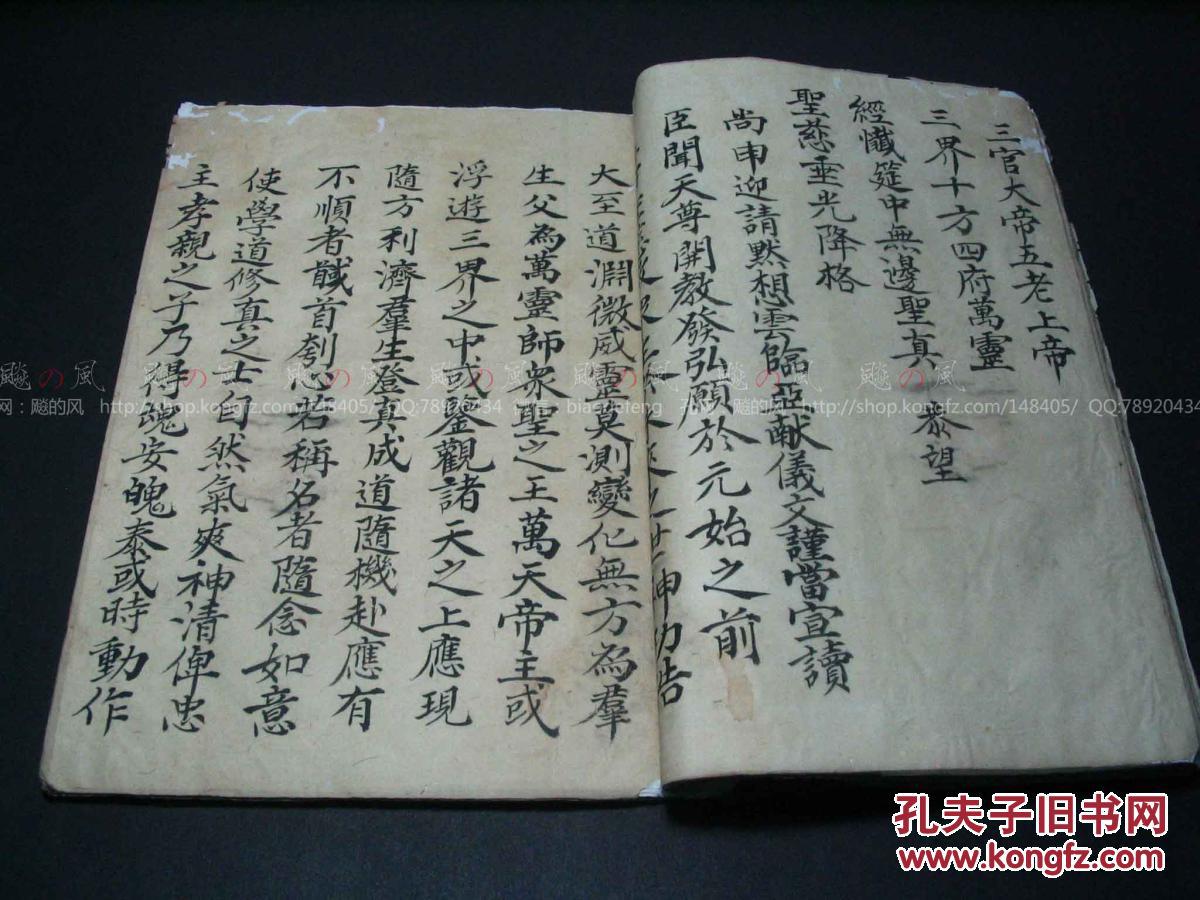 三官大帝五老上帝
三界十方四府萬靈
經懺筵中無邊聖真 恭望
聖慈垂光降格
尚申迎請默想雲臨亞献儀文謹當宣讀
臣聞天尊開教發弘願於元始之前
神功浩
大至道淵微威靈莫測變化無方為羣
生父為萬靈師衆聖之王萬天帝主或
浮遊三界之中或鑒觀諸天之上應現
隨方利濟羣生登真成道隨機赴應有
不順者馘首刳心若稱名者隨念如意
使學道修真之士自然氣爽神清俾忠
主孝親之子乃得魂安魄泰或時動作
飚の風 飚の風 飚の風
网：飚的风 http://shop.kongfz.com/148405/ QQ:78920434 微信：biaodefeng 孔 http://shop.kongfz.com/148405/ QQ:78920434
孔夫子旧书网
www.kongfz.com